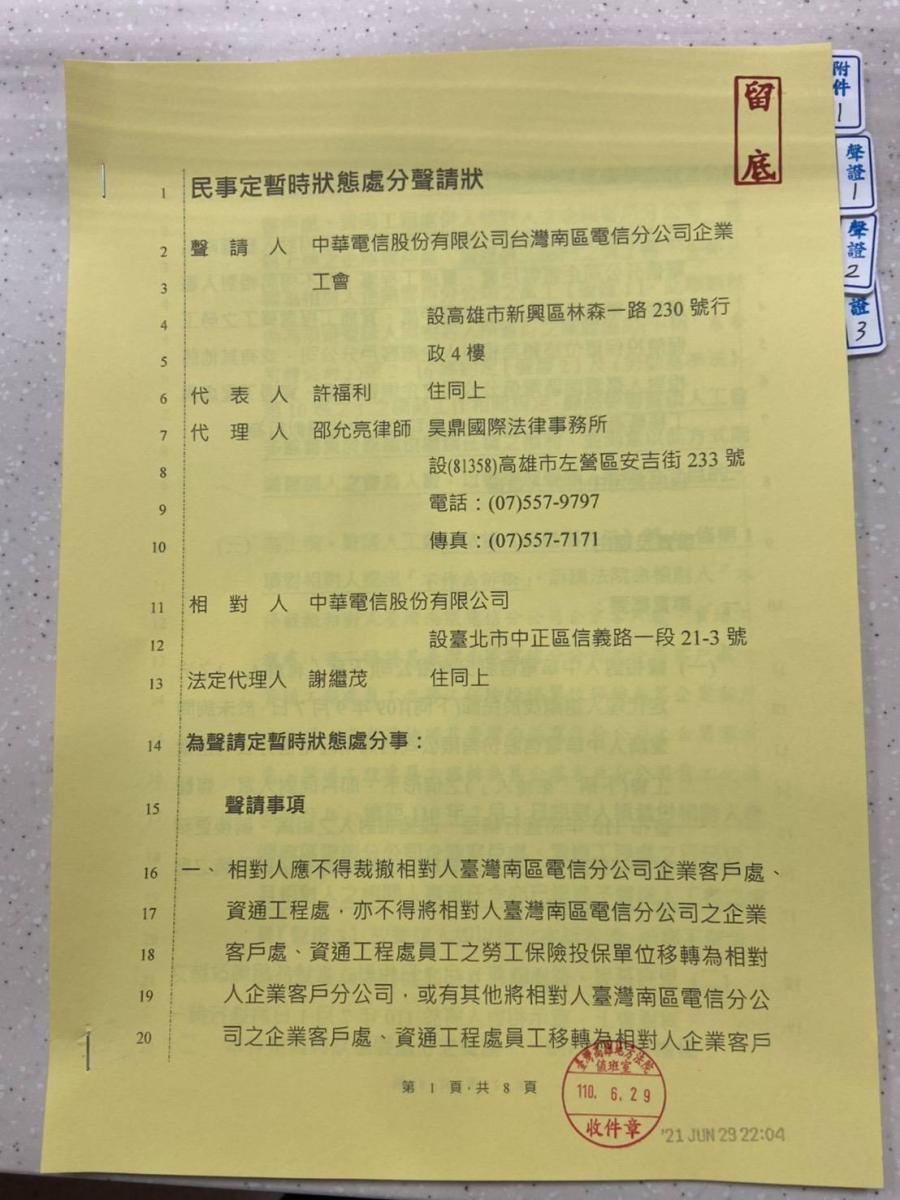 留底
附件
1
聲證
1
聲證
2
證
3
1 民事定暫時狀態處分聲請狀
2 聲請人 中華電信股份有限公司台灣南區電信分公司企業
3 工會
4 設高雄市新興區林森一路 230 號行
5 政 4 樓
6 代表人 許福利 住同上
7 代理人 邵允亮律師 昊鼎國際法律事務所
8 設(81358)高雄市左營區安吉街 233 號
9 電話：(07)557-9797
10 傳真：(07)557-7171
11 相對人 中華電信股份有限公司
12 設臺北市中正區信義路一段 21-3 號
13 法定代理人 謝繼茂 住同上
14 為聲請定暫時狀態處分事：
15 聲請事項
16 一、相對人應不得裁撤相對人臺灣南區電信分公司企業客戶處、
17 資通工程處，亦不得將相對人臺灣南區電信分公司之企業
18 客戶處、資通工程處員工之勞工保險投保單位移轉為相對
19 人企業客戶分公司，或有其他將相對人臺灣南區電信分公
20 司之企業客戶處、資通工程處員工移轉為相對人企業客戶
第 1 頁，共 8 頁
臺灣高雄地方法院
值班室
110. 6. 29
收件章
'21 JUN 29 22:04